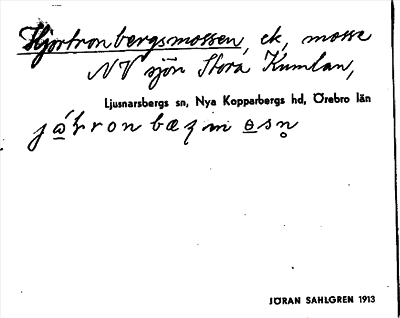 Hjortronbergsmossen, ek, mosse
NV sjön Stora Kumlan,
Ljusnarsbergs sn, Nya Kopparbergs hd, Örebro län
JÖRAN SAHLGREN 1913